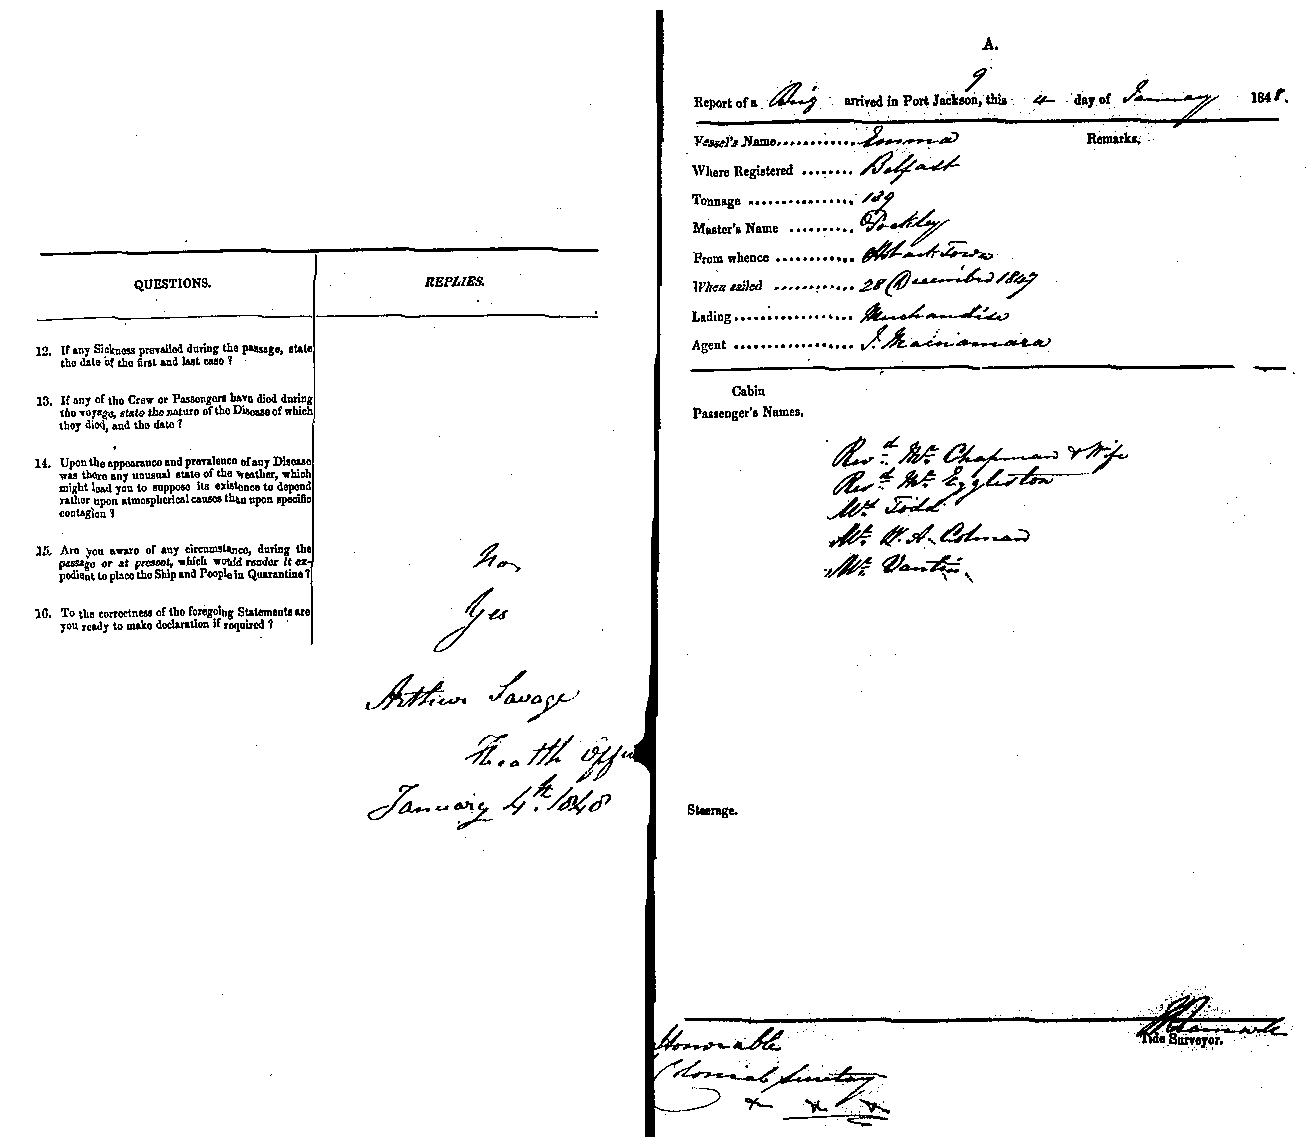 QUESTIONS.
REPLIES.
12. If any Sickness prevailed during the passage, state
the date of the first and last case ?
13. If any of the Crew or Passengers have died during
the voyage, state the nature of the Disease of which
they died, and the date ?
14. Upon the appearance and prevalence of any Disease
was there any unusual state of the weather, which
might lead you to suppose its existence to depend
rather upon atmospherical causes than upon specific
contagion ?
15. Are you aware of any circumstance, during the
passage or at present, which would render it ex-
pedient to place the Ship and People in Quarantine ?
No,
16. To the correctness of the foregoing Statements are
you ready to make declaration if required ?
Yes
Arthur Savage
Health Offi
January 4th. 1848
A.
9
Report of a Brig arrived in Port Jackson, this 4 day of January 1848.
Vessel's Name............ Emma
Remarks.
Where Registered ........ Belfast
Tonnage ................ 139
Master's Name .......... Pockley
From whence ............ Hobart Town
When sailed ............ 28 December 1847
Lading................. Merchandise
Agent .................. J. Macnamara
Cabin
Passenger's Names.
Revd. Mr. Chapman & Wife
Revd. Mr. Eggleston
Todd
Mr. W. A. Colman
Mr.
Steerage.
Tide Surveyor.
Honorable
Colonial Secretary